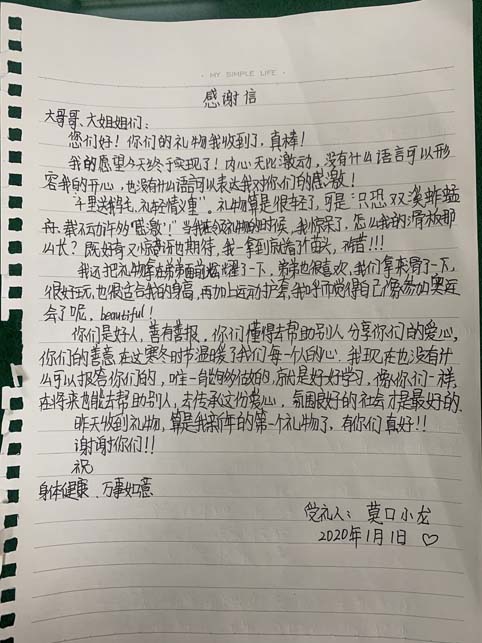 · MY SIMPLE LIFE ·
感谢信
大哥哥、大姐姐们：
您们好！你们的礼物我收到了，真棒！
我的愿望今天终于实现了！内心无比激动，没有什么语言可以形
容我的开心，也没有什么语言可以表达我对你们的感激！
"千里送鹅毛，礼轻情义重"。礼物算是很轻了，可是"只恐双溪舴艋
舟，载不动许多感激！"当我收到礼物的时候，我惊呆了，怎么我的滑板那
么长？既好奇又惊讶也期待，我一拿到就滑个苗头，
我还把礼物拿在弟弟面前炫耀了一下，弟弟也很喜欢，我们拿来滑了一下，
很好玩，也很适合我的身高，再加上运动护套，我几乎觉得自己像参加奥运
会了呢，beautiful！
你们是好人，善有善报，你们懂得去帮助别人，分享你们的爱心，
你们的善意在这寒冬时节温暖了我们每一个人的心。我现在也没有什
么可以报答你们的，唯一能够做的，就是好好学习，像你们一样，
在将来也能去帮助别人，去传承这份爱心，氛围良好的社会才是最好的.
昨天收到礼物，算是我新年的第一个礼物了，有你们真好！！
谢谢你们！！
祝
身体健康、万事如意
受礼人：莫口小龙
2020年1月1日 ♡